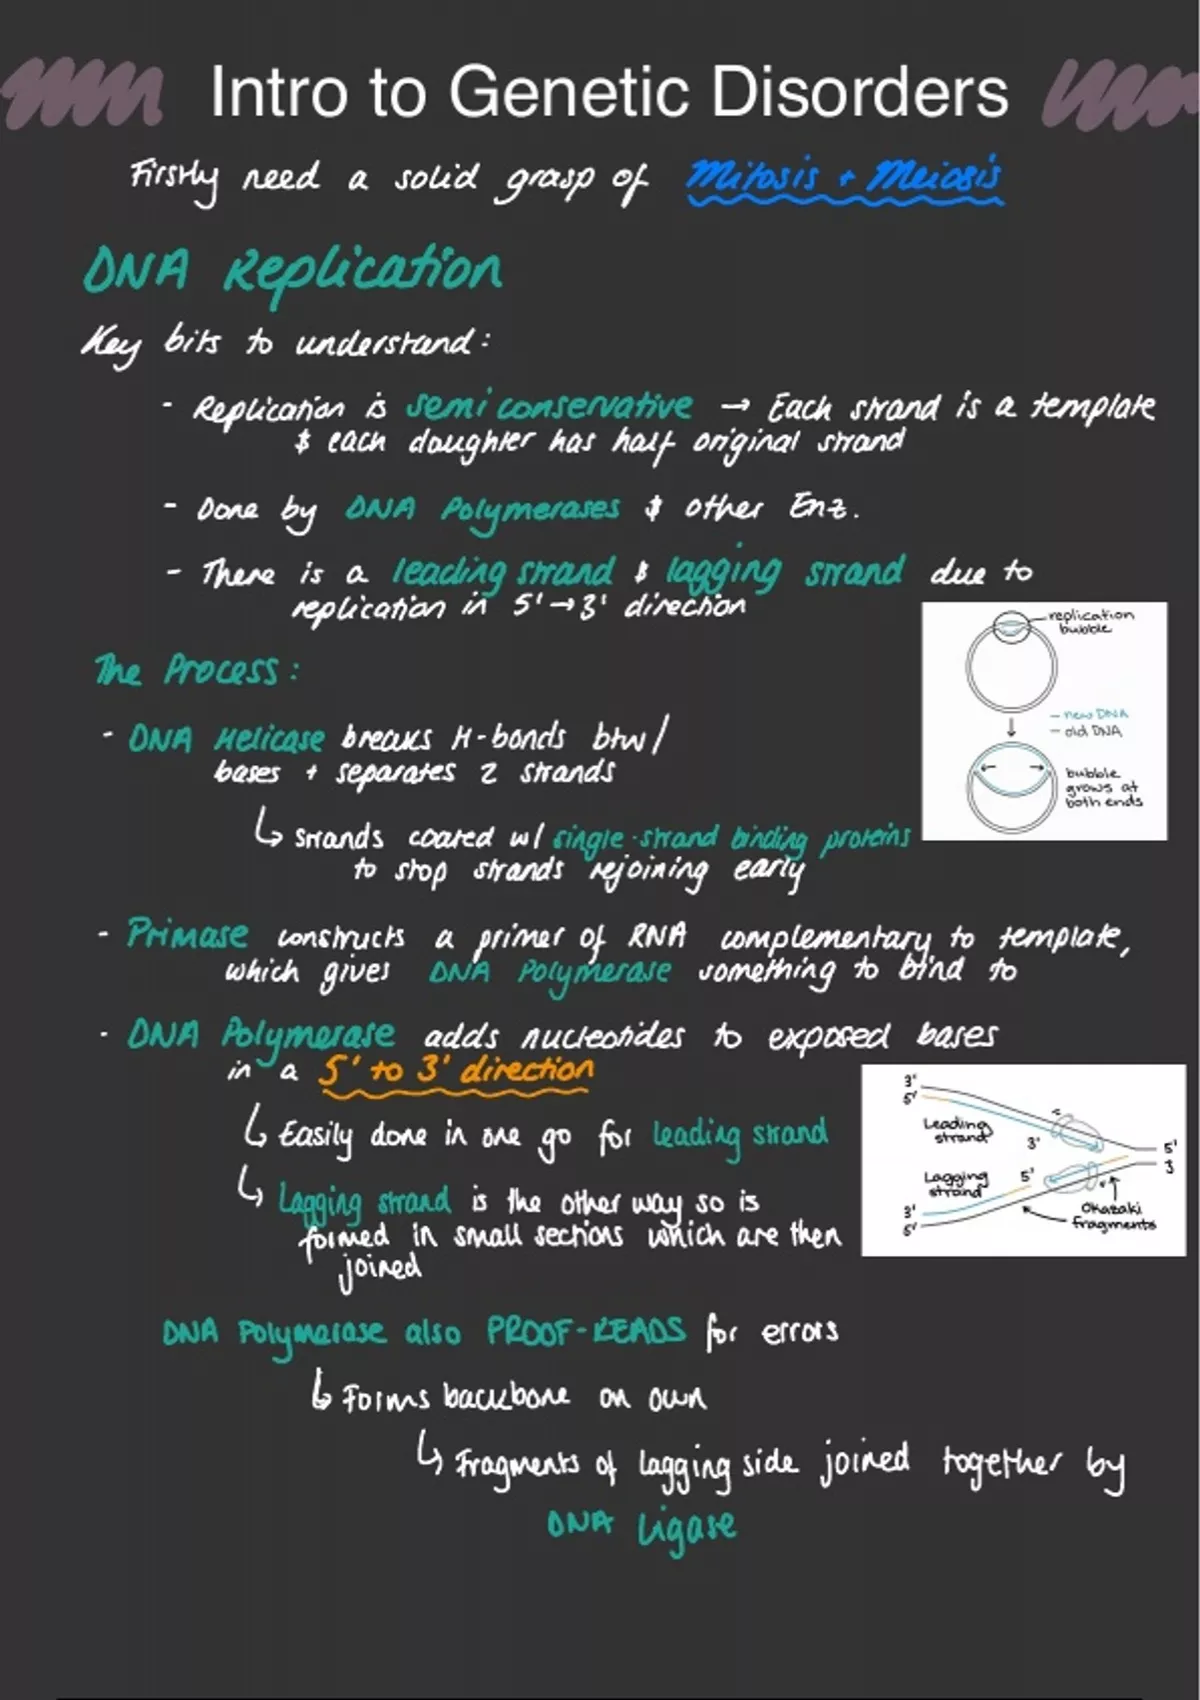 Intro to Genetic Disorders
Firstly need a solid grasp of Mitosis + Meiosis
DNA Replication
Key bits to understand:
- Replication is semi conservative → Each strand is a template
& each daughter has half original strand
- Done by DNA Polymerases & other Enz.
- There is a leading strand & lagging strand due to
replication in 5' → 3' direction
replication
bubble
- new DNA
- old DNA
bubble
grows at
both ends
The Process:
- DNA Helicase breaks H-bonds btw/
bases + separates 2 strands
↳ Strands coated w/ single-strand binding proteins
to stop strands rejoining early
- Primase constructs a primer of RNA complementary to template,
which gives DNA Polymerase something to bind to
- DNA Polymerase adds nucleotides to exposed bases
in a 5' to 3' direction
↳ Easily done in one go for leading strand
↳ Lagging strand is the other way so is
formed in small sections which are then
joined
3'
5'
Leading
strand
3'
5'
3
Lagging
strand
5'
3'
5'
Okazaki
fragments
DNA Polymerase also PROOF-READS for errors
↳ Forms backbone on own
↳ Fragments of lagging side joined together by
DNA Ligase